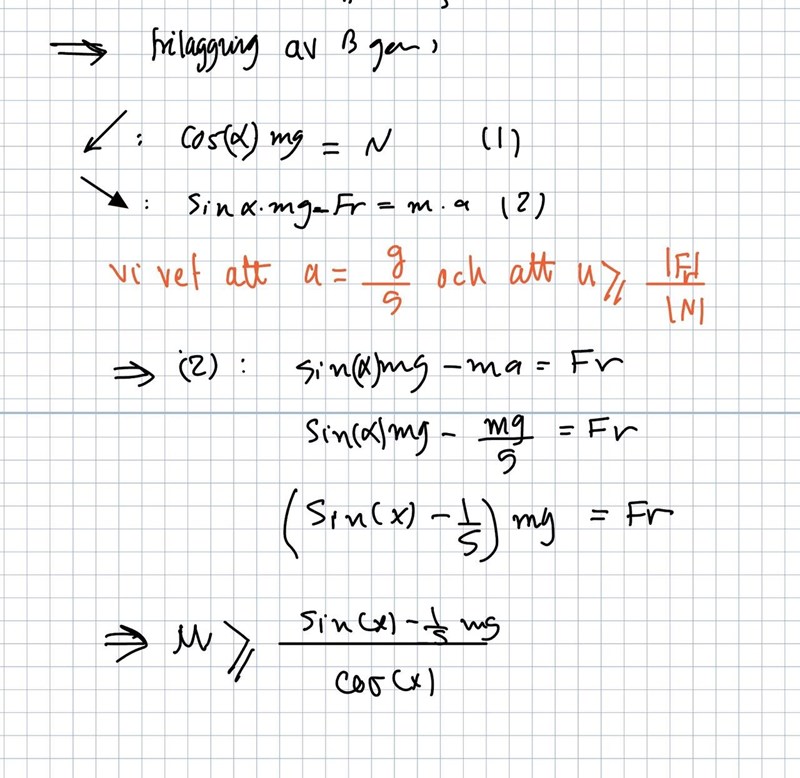 ⟹ frilaggning av B gen,
↙ : cos(α) mg = N (1)
↘ : sin α · mg - Fr = m · a (2)
vi vet att a = g/5 och att u ⩾ |Fr|/|N|
⇒ (2) : sin(α)mg - ma = Fr
sin(α)mg - mg/5 = Fr
(sin(x) - 1/5) mg = Fr
⇒ M ⩾ sin(x) - 1/5 mg / cos(x)